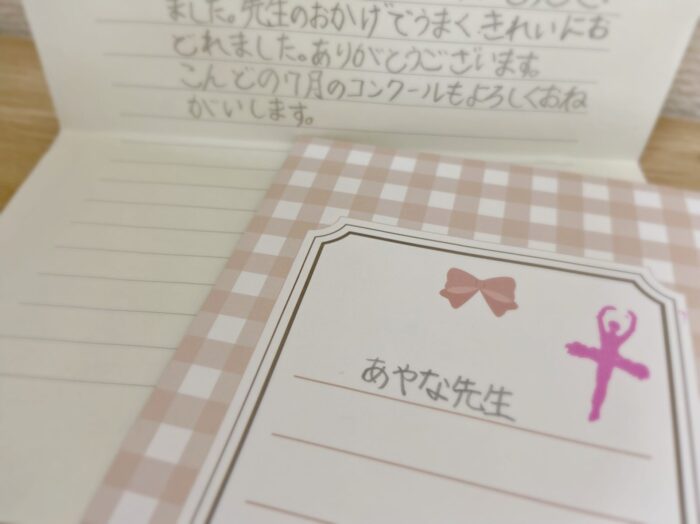 ました。先生のおかげでうまく、きれいにお
どれました。ありがとうございます。
こんどの7月のコンクールもよろしくおね
がいします。
あやな先生